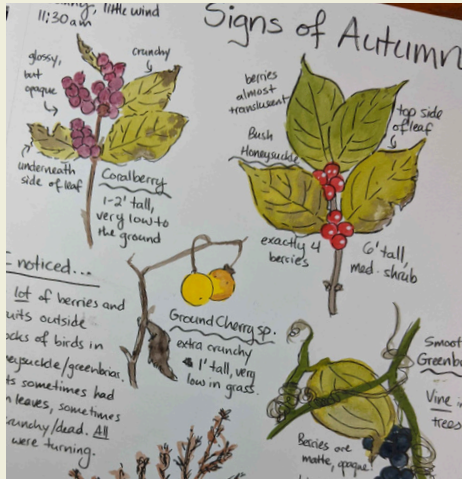 little wind
11:30am
Signs of Autumn
glossy,
but
opaque
crunchy
underneath
side of leaf
Coralberry
1-2' tall,
very low to
the ground
berries
almost
translucent
Bush
Honeysuckle
top side
of leaf
exactly 4
berries
6' tall,
med. shrub
noticed...
lot of berries and
outside
of birds in
/greenbriar.
sometimes had
leaves, sometimes
crunchy/dead. All
were turning.
Ground Cherry sp.
extra crunchy
1' tall, very
low in grass.
Smooth
Vine
trees
Berries are
matte, opaque